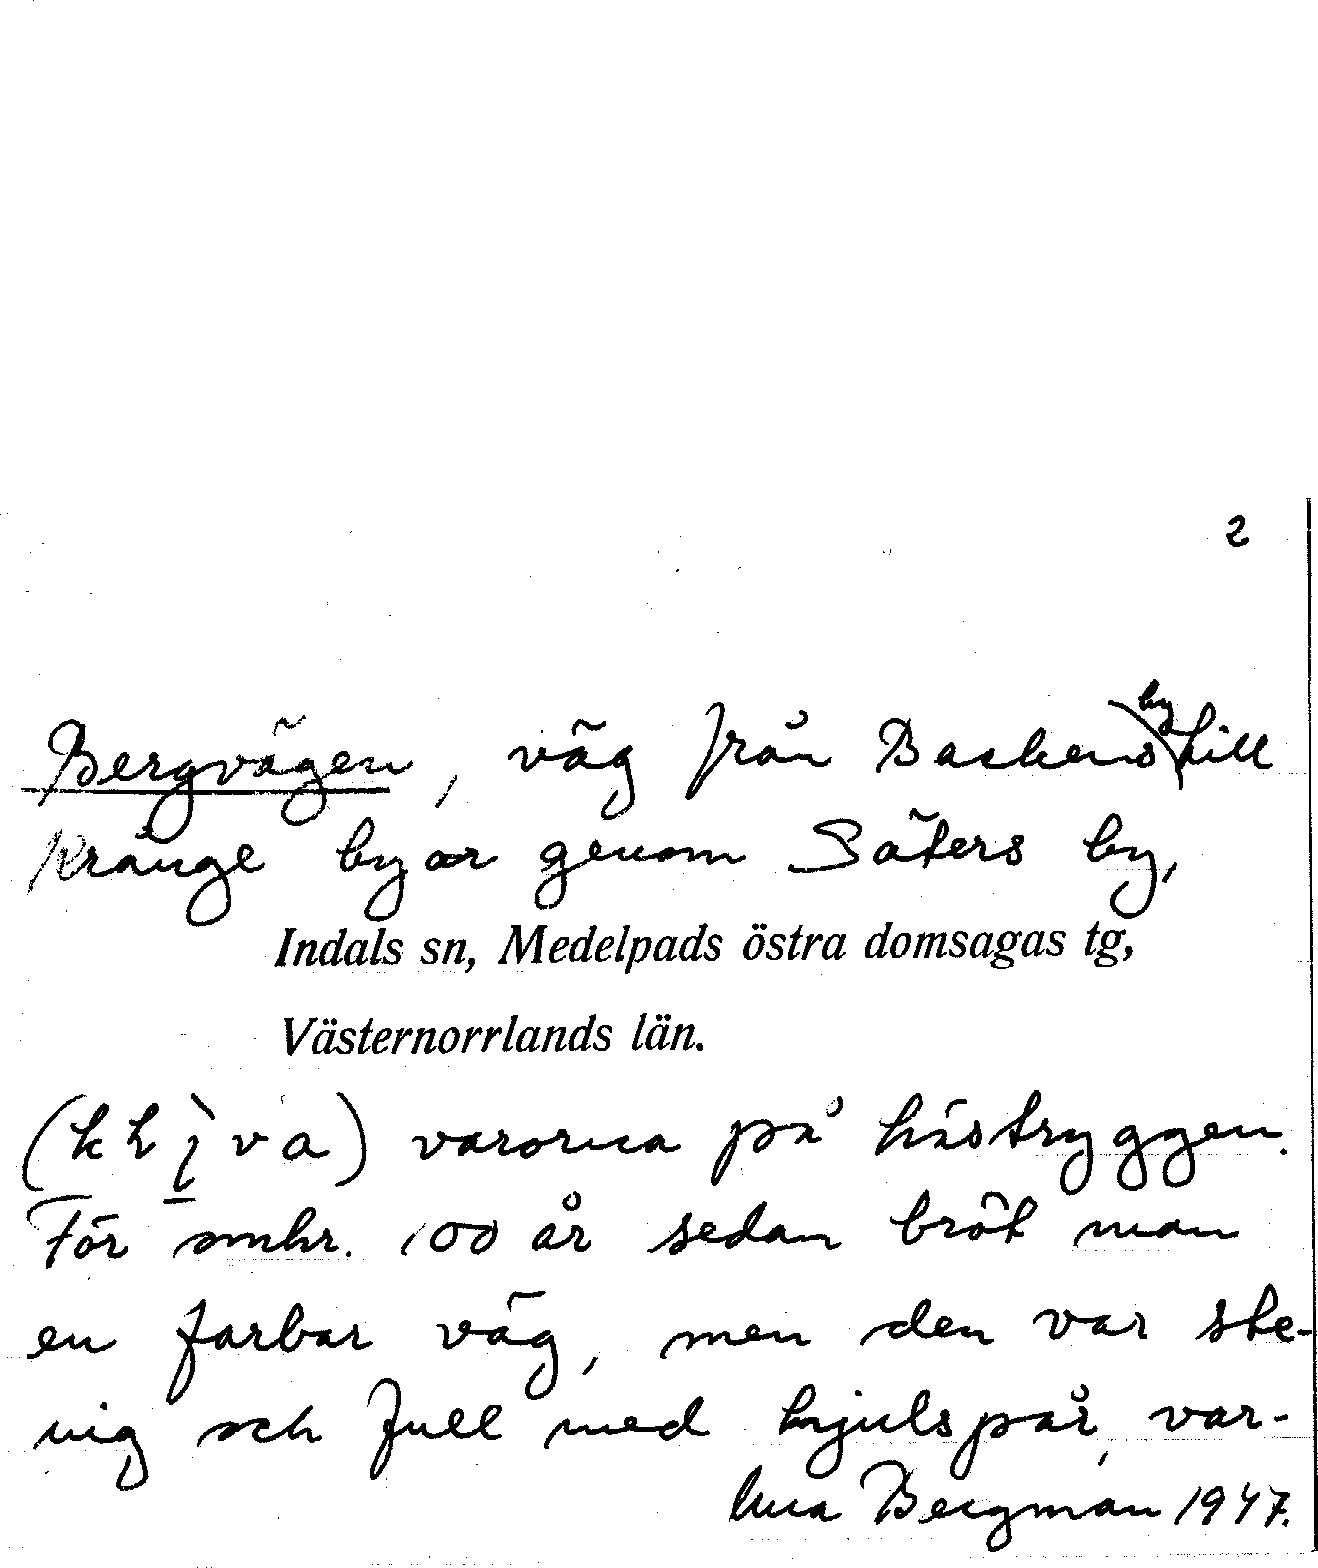 2
Bergvägen, väg från Backens by till
Kränge byar genom Säters by,
Indals sn, Medelpads östra domsagas tg,
Västernorrlands län.
varorna på hästryggen.
För omkr. 100 år sedan bröt man
en farbar väg, men den var ste-
nig och full med hjulspår, var-
Bergman 1947.